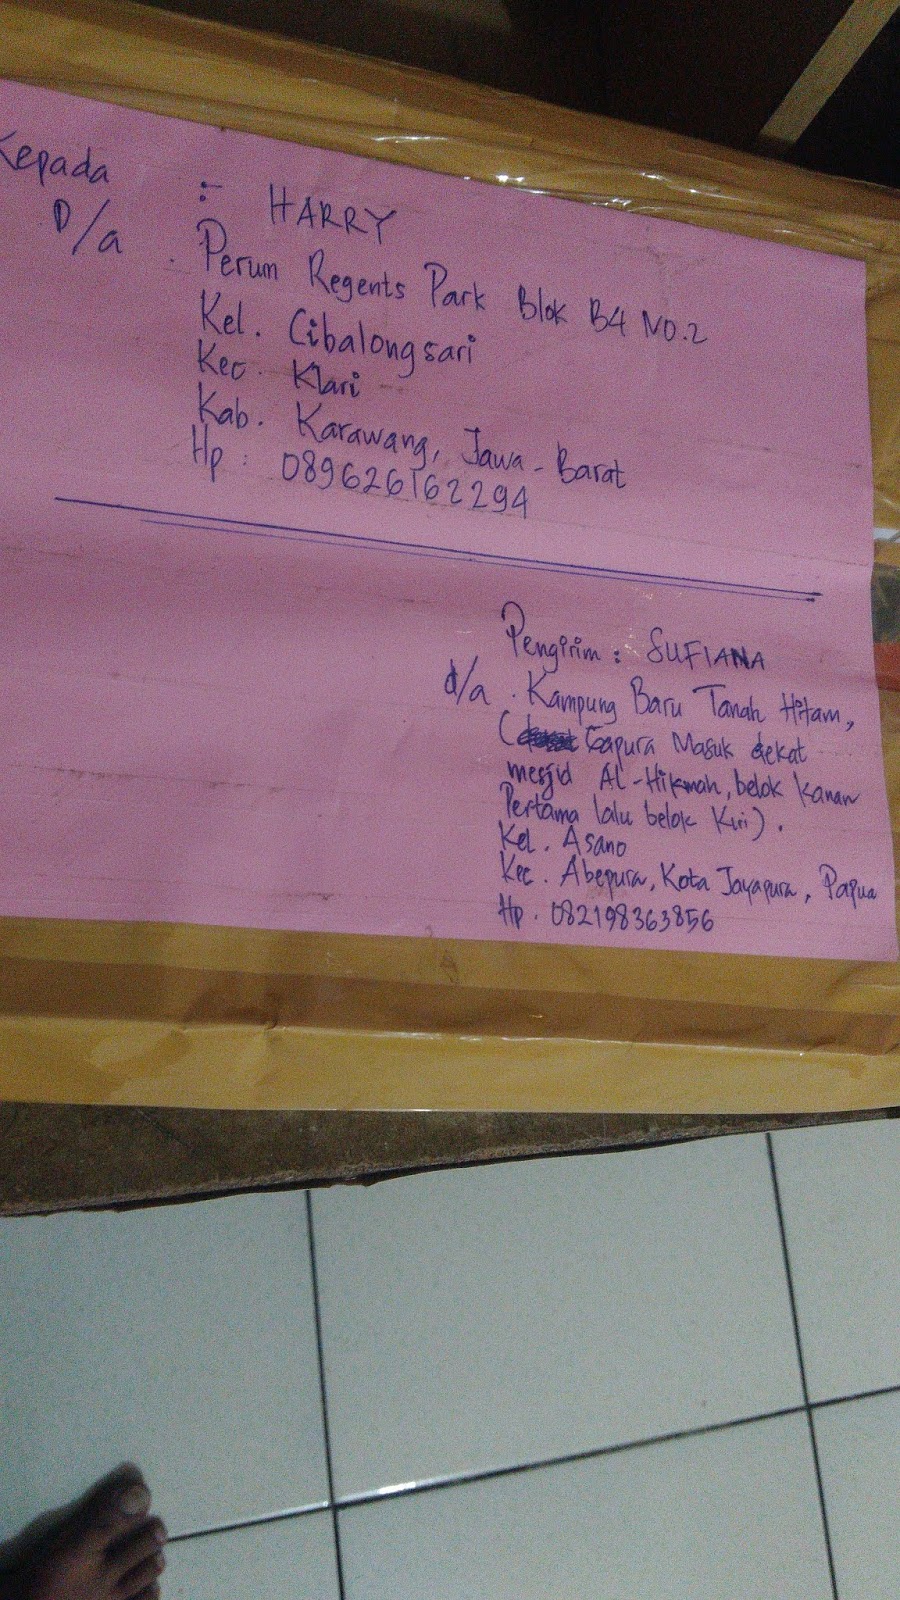 Kepada : HARRY
D/a . Perum Regents Park Blok B4 NO.2
Kel. Cibalongsari
Kec. Klari
Kab. Karawang, Jawa-Barat
Hp : 089626162294
Pengirim : SUFIANA
d/a . Kampung Baru Tanah Hitam,
( Gapura Masuk dekat
mesjid Al-Hikmah, belok kanan
Pertama lalu belok Kiri).
Kel. Asano
Kec. Abepura, Kota Jayapura, Papua
Hp. 082198363856